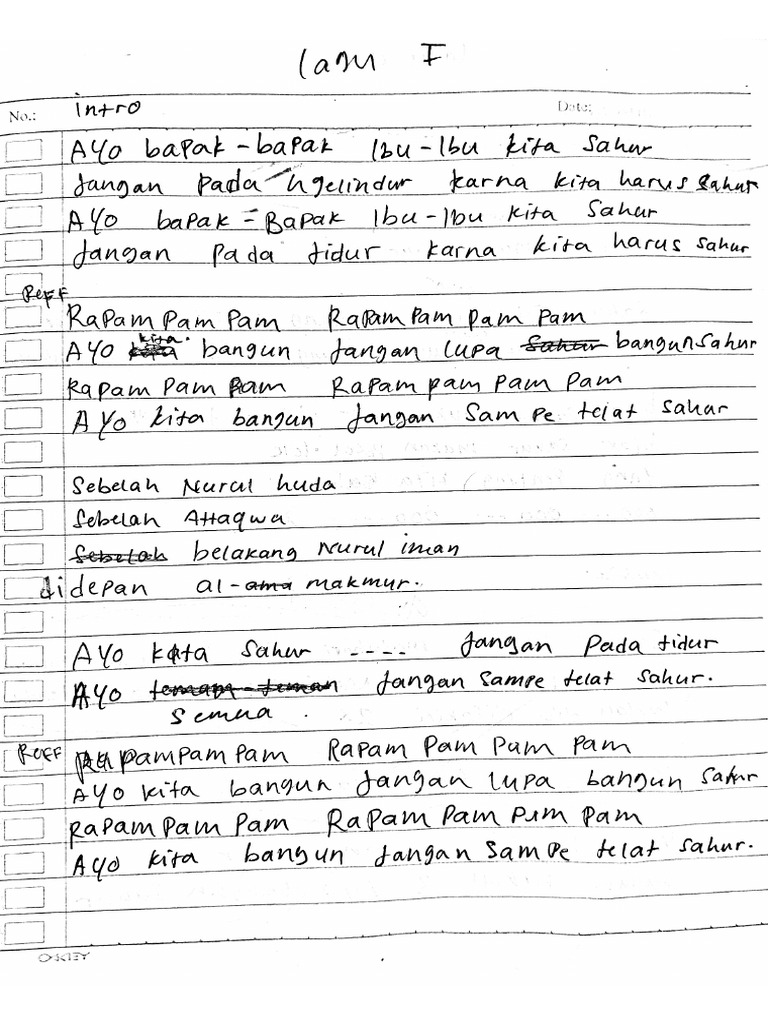 Lagu I
No.: intro Date:
Ayo bapak-bapak Ibu-Ibu kita sahur
Jangan pada ngelindur karna kita harus sahur
Ayo bapak-Bapak Ibu-Ibu kita sahur
Jangan pada tidur karna kita harus sahur
Reff
Rapam pam pam Rapam pam pam pam
Ayo kita bangun Jangan lupa sahur bangun sahur
Rapam pam pam Rapam pam pam pam
Ayo kita bangun Jangan sampe telat sahur
Sebelah Nurul huda
Sebelah Attaqwa
Sebelah belakang Nurul iman
didepan al-ama makmur.
Ayo kita sahur ---- Jangan pada tidur
Ayo teman-teman Jangan sampe telat sahur.
semua.
Reff pampampam Rapam pam pam pam
Ayo kita bangun Jangan lupa bangun sahur
Rapam pam pam Rapam pam pam pam
Ayo kita bangun Jangan sampe telat sahur.
OKEY